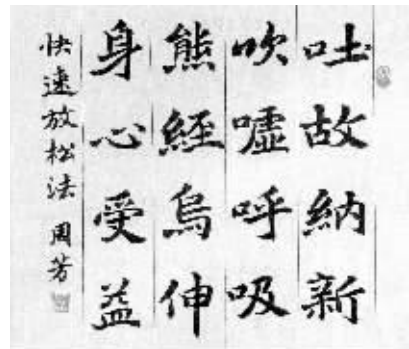 吐故納新
吹嘘呼吸
熊經鳥伸
身心受益
快速放松法 周芳